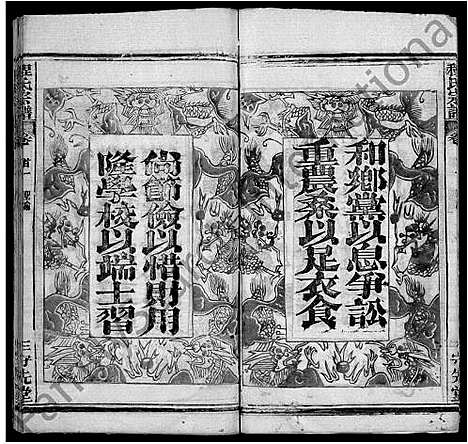 程氏宗譜
卷首
和鄉黨以息爭訟
重農桑以足衣食
尚節儉以惜財用
隆學校以端士習